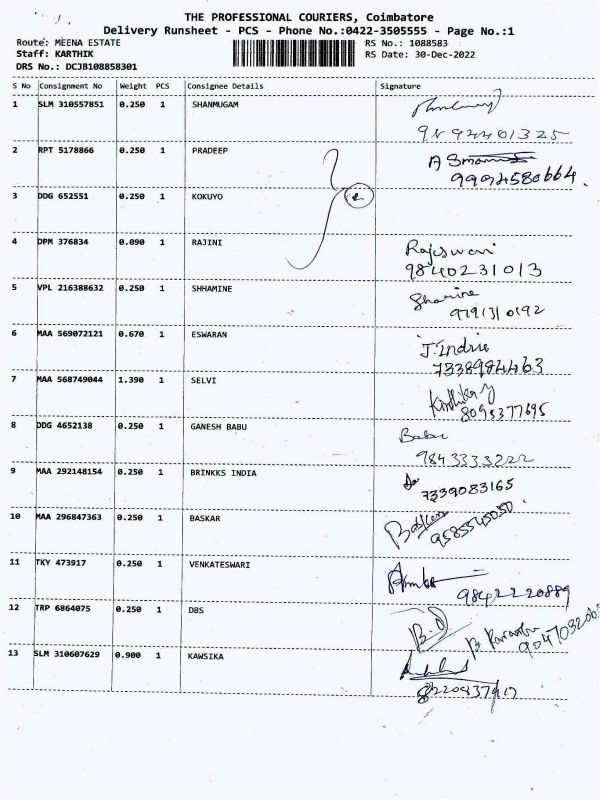 THE PROFESSIONAL COURIERS, Coimbatore
Delivery Runsheet - PCS - Phone No.:0422-3505555 - Page No.:1
Route: MEENA ESTATE
RS No.: 1088583
Staff: KARTHIK
RS Date: 30-Dec-2022
DRS No.: DCJB108858301
S No Consignment No Weight PCS Consignee Details Signature
1 SLM 310557851 0.250 1 SHANMUGAM
9N 94401325
2 RPT 5178866 0.250 1 PRADEEP
9994580664
3 DDG 652551 0.250 1 KOKUYO
4 DPM 376834 0.090 1 RAJINI Rajeswari
9840231013
5 VPL 216388632 0.250 1 SHHAMINE Shamine
9791310192
6 MAA 569072121 0.670 1 ESWARAN J. Indric
7338984463
7 MAA 568749044 1.390 1 SELVI
8098377695
8 DDG 4652138 0.250 1 GANESH BABU Babu
9843333222
9 MAA 292148154 0.250 1 BRINKKS INDIA
7339083165
10 MAA 296847363 0.250 1 BASKAR Baskar
9585545050
11 TKY 473917 0.250 1 VENKATESWARI
9842220889
12 TRP 6864075 0.250 1 DBS
13 SLM 310607629 0.900 1 KAWSIKA
8220837917